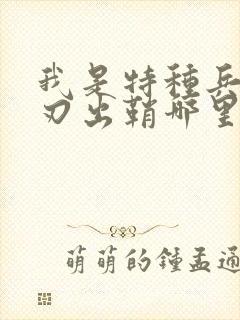 我是特種兵
刃出鞘哪里
萌萌的鍾孟通